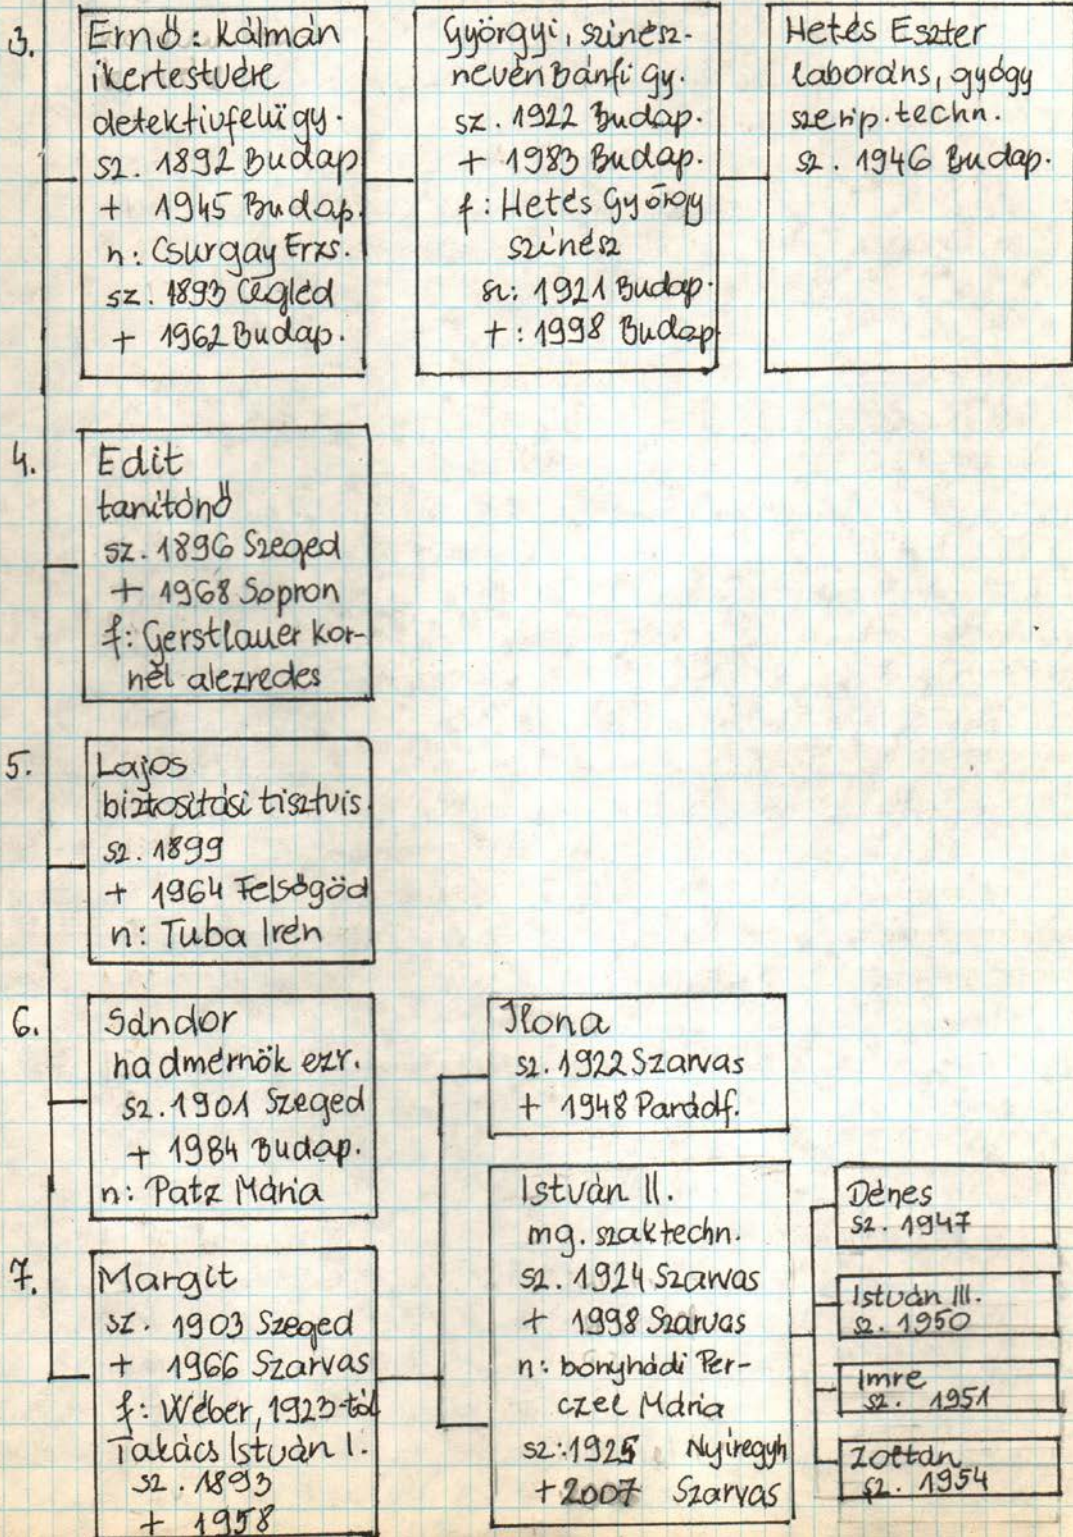 3.
Ernő: Kálmán
ikertestvére
detektivfelügy.
sz. 1892 Budap
+ 1945 Budap.
n: Csurgay Erzs.
sz. 1893 Cegléd
+ 1962 Budap.
Györgyi, szinész-
nevén Bánfi Gy.
sz. 1922 Budap.
+ 1983 Budap.
f: Hetés György
szinész
sz: 1921 Budap.
+: 1998 Budap
Hetés Eszter
laboráns, gyógy
szerip. techn.
sz. 1946 Budap.
4.
Edit
tanítónő
sz. 1896 Szeged
+ 1968 Sopron
f: Gerstlauer Kor-
nél alezredes
5.
Lajos
biztosítási tisztvis.
sz. 1899
+ 1964 Felsőgöd
n: Tuba Irén
6.
Sándor
hadmérnök ezr.
sz. 1901 Szeged
+ 1984 Budap.
n: Patz Mária
7.
Margit
sz. 1903 Szeged
+ 1966 Szarvas
f: Wéber, 1923-tól
Takács István I.
sz. 1893
+ 1958
Ilona
sz. 1922 Szarvas
+ 1948 Parádf.
István II.
mg. szaktechn.
sz. 1924 Szarvas
+ 1998 Szarvas
n: bonyhádi Per-
czel Mária
sz: 1925 Nyiregyh
+ 2007 Szarvas
Dénes
sz. 1947
István III.
sz. 1950
Imre
sz. 1951
Zoltán
sz. 1954